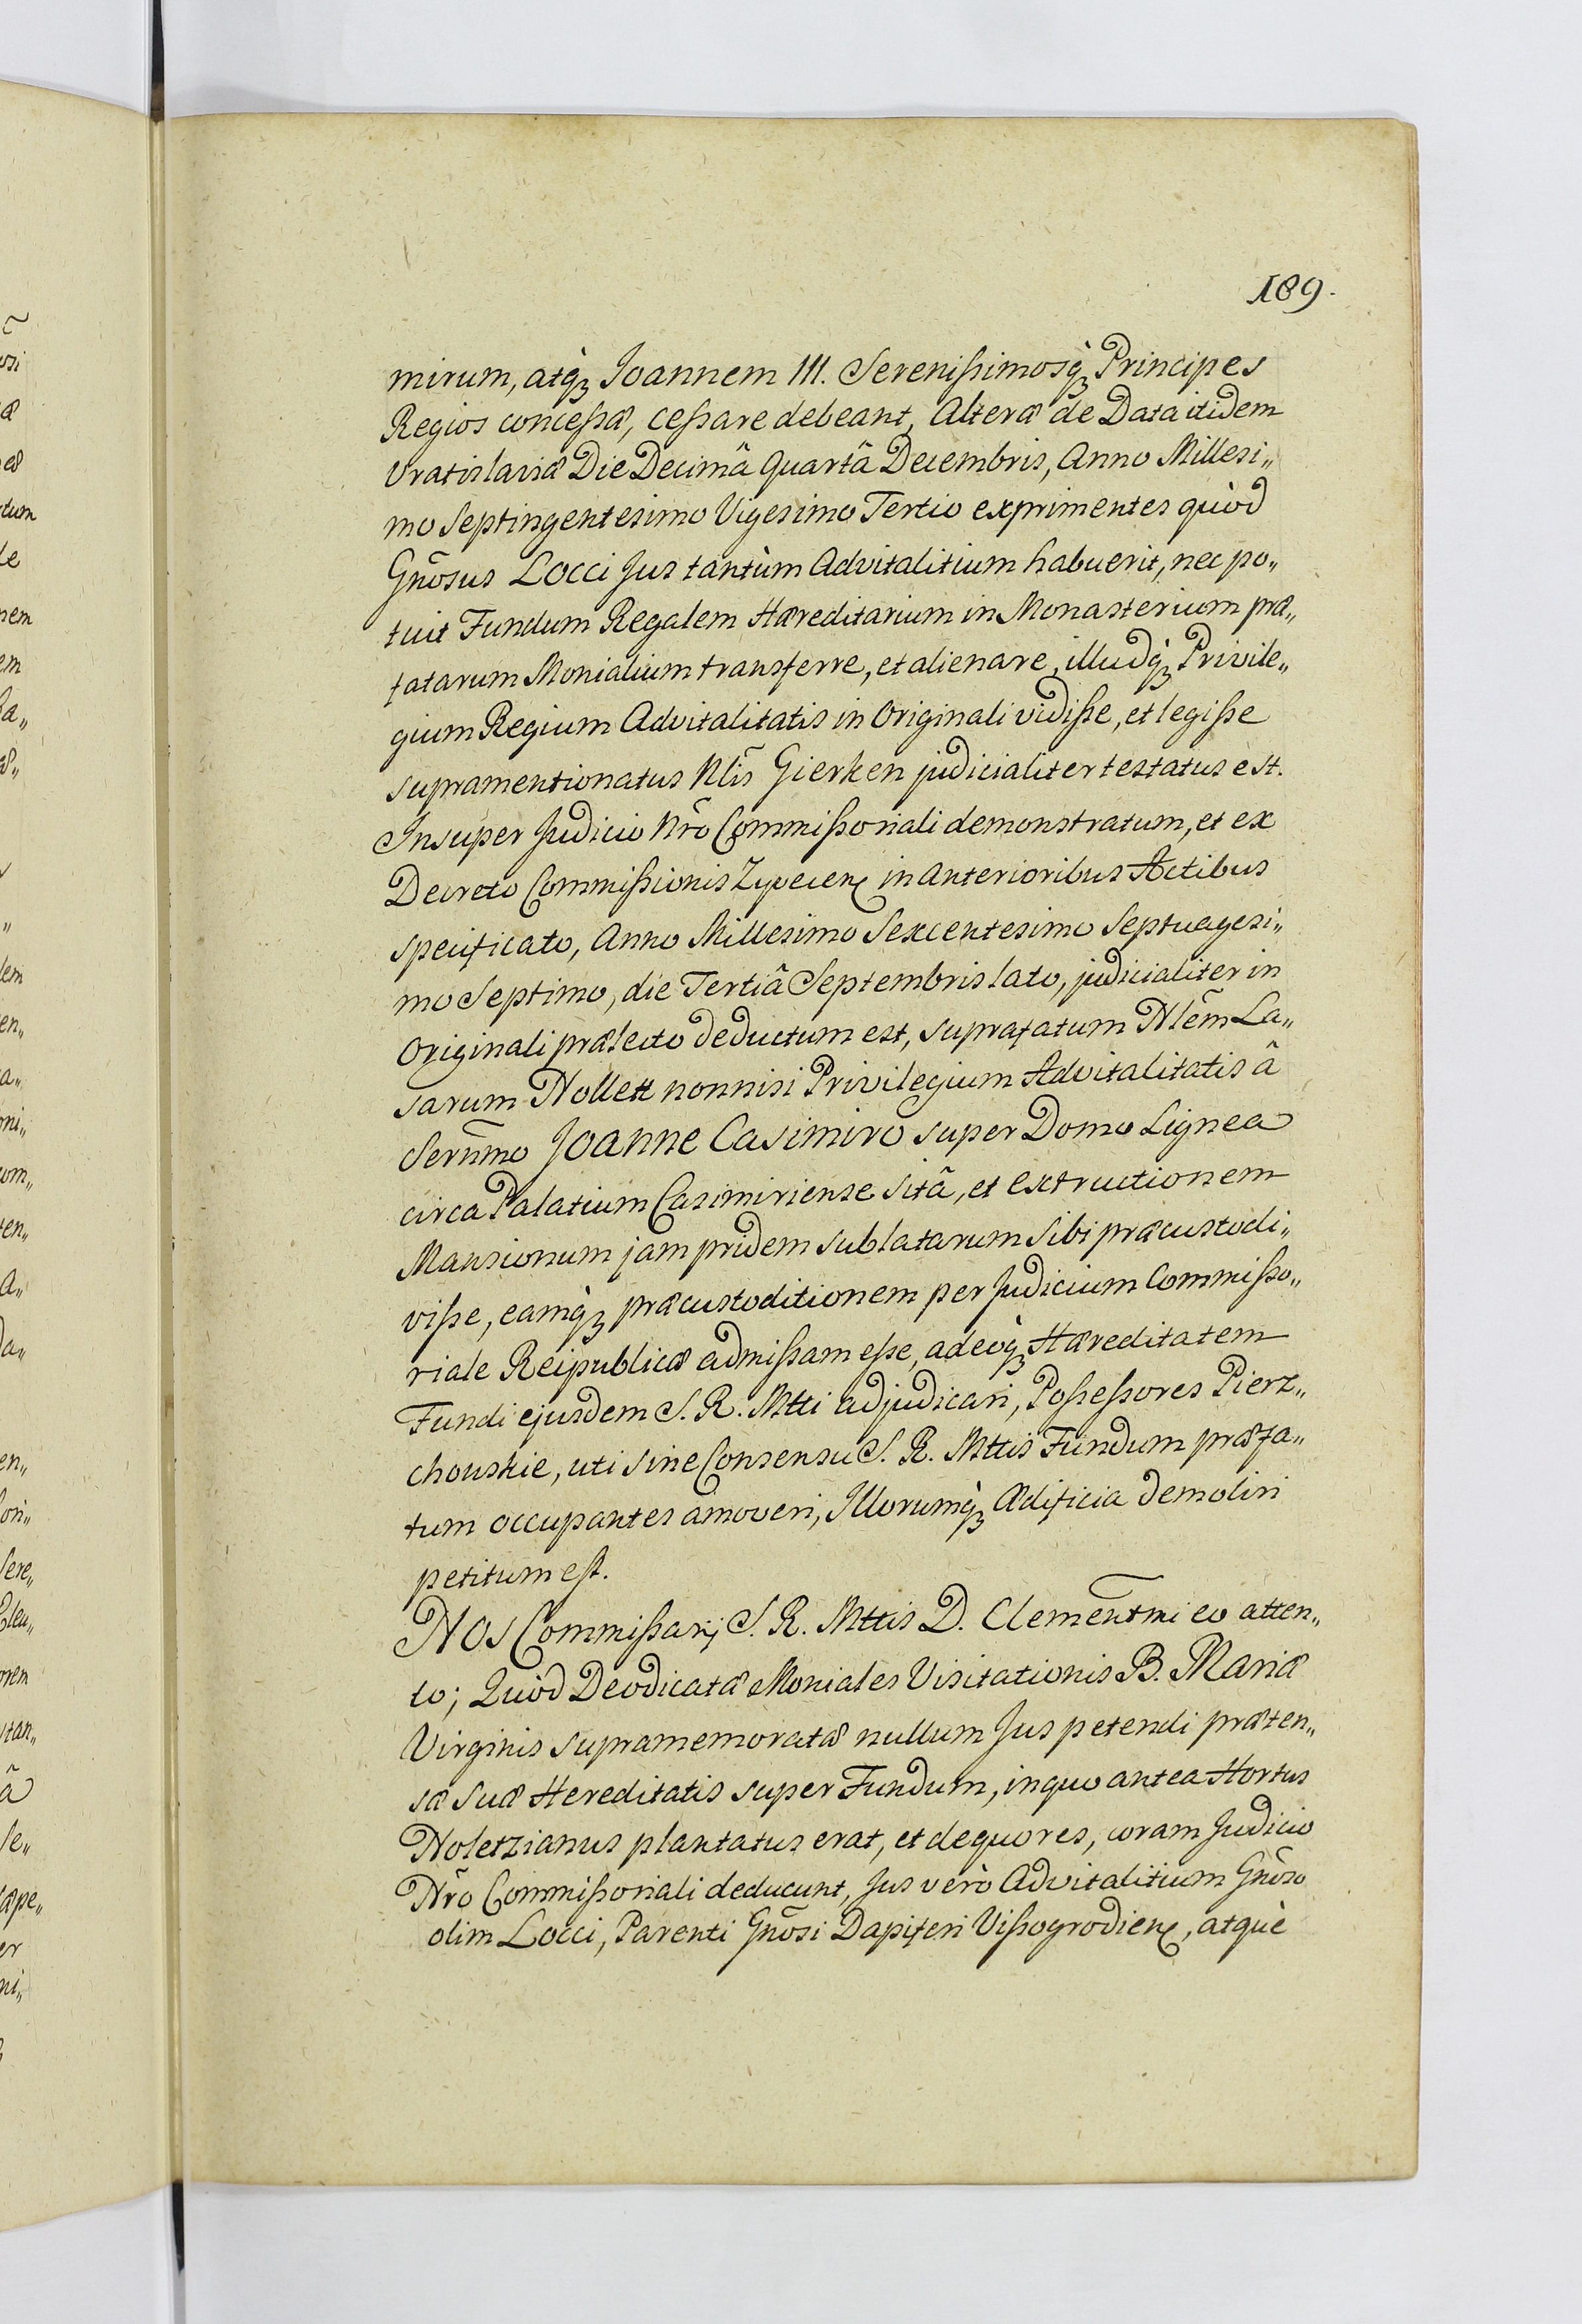 189.
mirum, atq̀ꝫ Joannem III. Serenißimosq̀ꝫ Principes
Regios conceßæ, ceßare debeant, Alteræ de Data itidem
Vratislaviæ Die Decimâ Quartâ Decembris, Anno Millesi„
mo Septingentesimo Vigesimo Tertio exprimentes quòd
Gnõsus Locci Jus tantùm Advitalitium habuerit, nec po„
tuit Fundum Regalem Hæreditarium in Monasterium præ„
fatarum Monialium transferre, et alienare, illudq̀ꝫ Privile„
gium Regium Advitalitatis in Originali vidiße, et legiße
supramentionatus Nlĩs Gierken judicialiter testatus est.
Insuper Judicio Nr̃o Commißoriali demonstratum, et ex
Decreto Commißionis Zywecen̨ in anterioribus Actibus
specificato, Anno Millesimo Sexcentesimo Septuagesi„
mo Septimo, die Tertiâ Septembris lato, judicialiter in
Originali prælecto deductum est, suprafatum Nlẽm La„
sarum Nollett nonnisi Privilegium Advitalitatis â
Serñmo Joanne Casimiro super Domo Lignea
circa Palatium Casimiriense sitâ, et extructionem
Mansionum jam pridem sublatarum sibi præcustodi„
viße, eamq̀ꝫ præcustoditionem per Judicium Commißo„
riale Reipublicæ admißam eße, adeoq̀ꝫ Hæreditatem
Fundi ejusdem S. R. Mtti adjudicari, Poßeßores Pierz„
chouskie, uti sine Consensu S. R. Mttis Fundum præfa„
tum occupantes amoveri, Illorumq̀ꝫ Ædificia demoliri
petitum est.
Nos Commißarij S. R. Mttis D. Clemeñtmi eo atten„
to; Quòd Deodicatæ Moniales Visitationis B. Mariæ
Virginis supramemoratæ nullum Jus petendi præten„
sæ suæ Hereditatis super Fundum, in quo antea Hortus
Noletzianus plantatus erat, et de quo res, coram Judicio
Nr̃o Commißoriali deducunt, Jus verò Advitalitium Gnõso
olim Locci, Parenti Gnõsi Dapiferi Vißogrodien̨, atquè